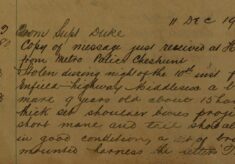 11 Dec 19
From Supt Duke
Copy of message just received at H
from Metro Police Cheshunt
Stolen during night of the 10th inst f
Enfield-highway Middlesex a b
mare 9 years old about 15 ha
thick set shoulder bones proj
short mane and tail shoe
in good condition, a set of bra
mounted harness the letters